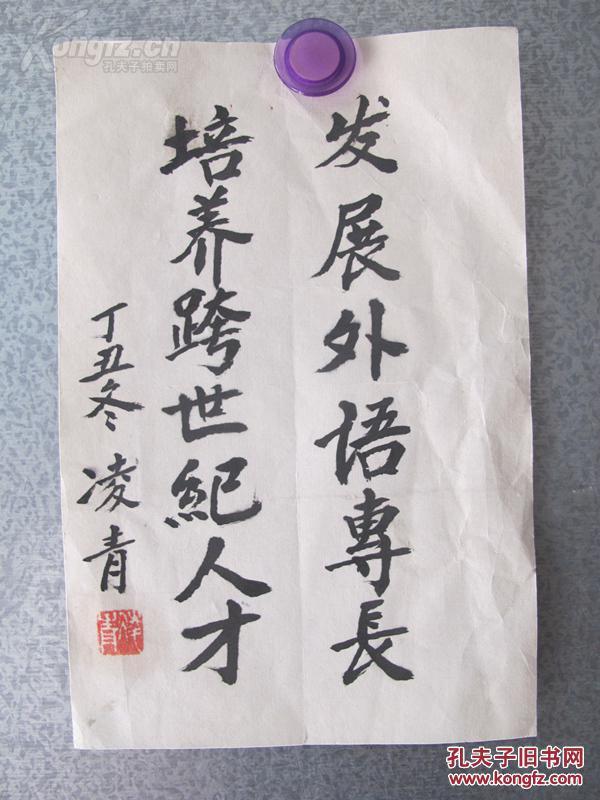 发展外语專長
培养跨世紀人才
丁丑冬 凌青
Kongfz.cn
孔夫子拍卖网
孔夫子旧书网
www.kongfz.com